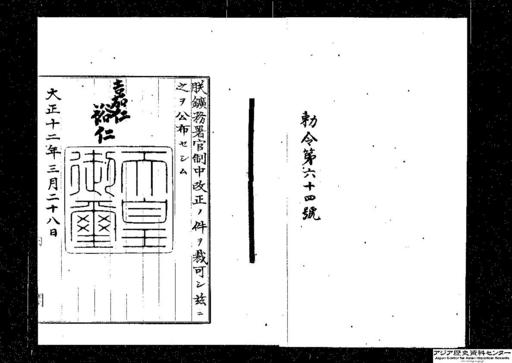 勅令第六十四號
朕鑛務署官制中改正ノ件ヲ裁可シ茲ニ
之ヲ公布セシム
嘉仁
裕仁
天皇
御璽
大正十二年三月二十八日
アジア歴史資料センター
Japan Center for Asian Historical Records